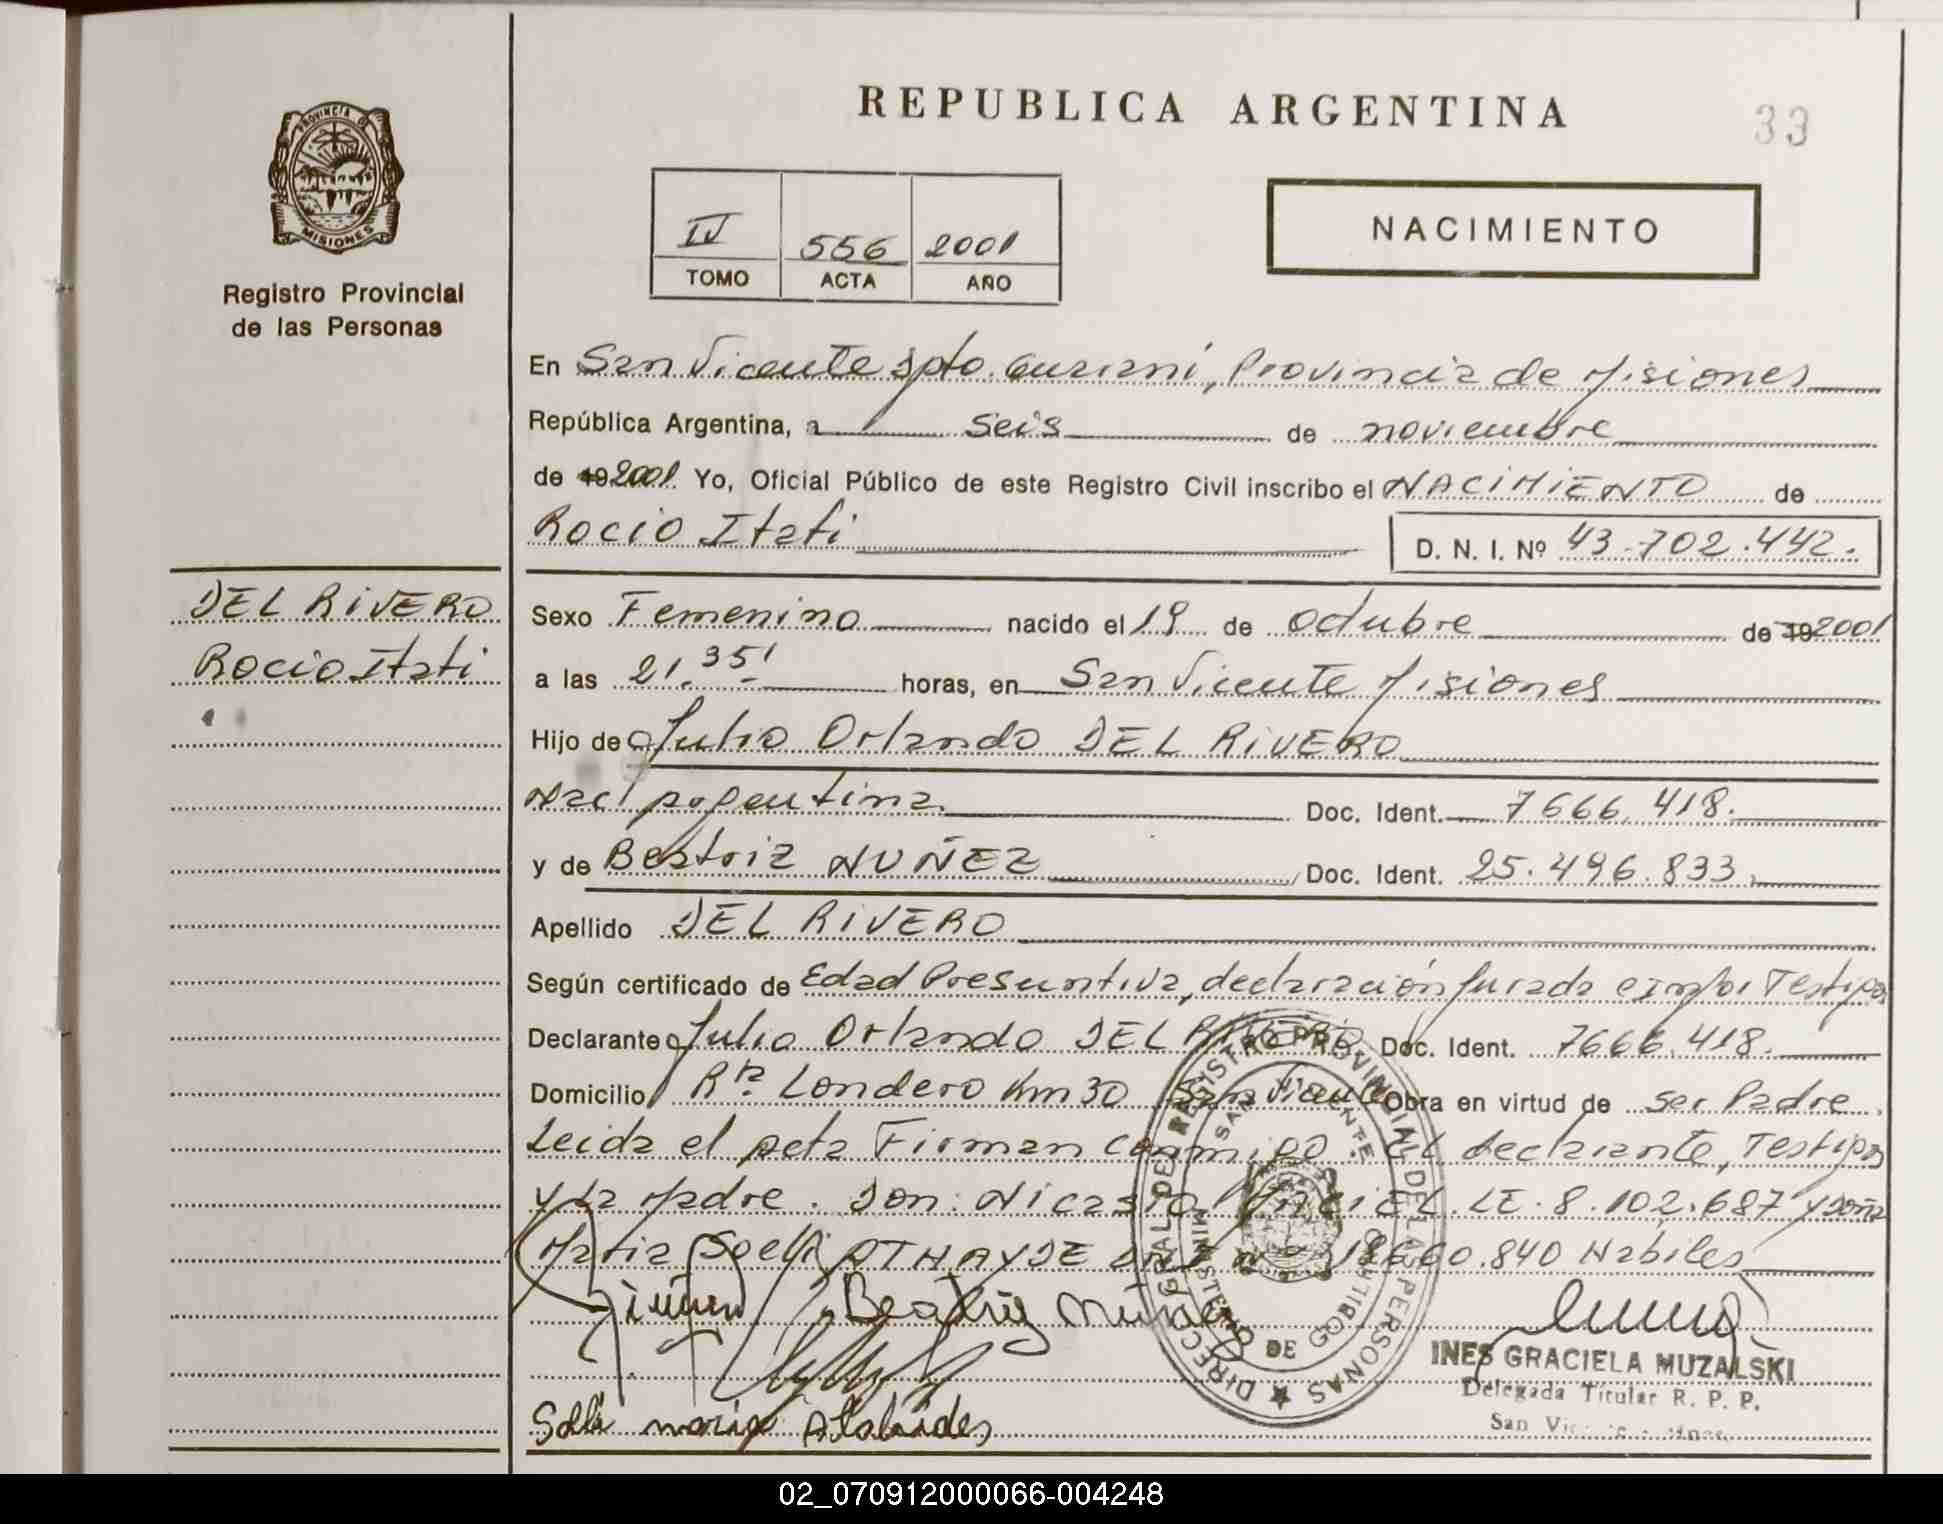 REPUBLICA ARGENTINA
33
PROVINCIA DE
MISIONES
Registro Provincial
de las Personas
IV 556 2001
TOMO ACTA AÑO
NACIMIENTO
En San Vicente Dpto. Guaraní, Provincia de Misiones
República Argentina, a seis de noviembre
de 19 2001 Yo, Oficial Público de este Registro Civil inscribo el NACIMIENTO de
Rocio Itati D. N. I. Nº 43.702.442.
DEL RIVERO
Rocio Itati
Sexo Femenino nacido el 19 de octubre de 19 2001
a las 21.35' horas, en San Vicente Misiones
Hijo de Julio Orlando DEL RIVERO
Nac/ Argentina Doc. Ident. 7666.418.
y de Beatriz NUÑEZ Doc. Ident. 25.496.833
Apellido DEL RIVERO
Según certificado de Edad Presuntiva, declaración Jurada Testigos
Declarante Julio Orlando DEL RIVERO Doc. Ident. 7666.418.
Domicilio Rta. Londero Km 30 San Vicente Obra en virtud de ser Padre
Leida el Acta Firman conmigo El declarante, Testigos
y la Madre. Don: Nicasio LE. 8.102.687 y doña
Maria ATHAYDE DNI Nº 18660.840 Habiles
Beatriz Nuñez
DIRECC. GRAL DEL REGISTRO PROVINCIAL DE LAS PERSONAS
SAN VICENTE
MINISTERIO DE GOBIERNO
INES GRACIELA MUZALSKI
Delegada Titular R. P. P.
San
maria
02_070912000066-004248